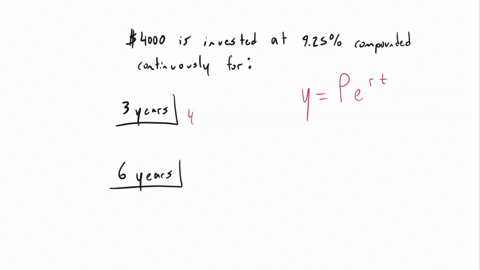 $4000 is invested at 9.25% compounded
continuously for:
y = Pe^{rt}
3 years 4
6 years